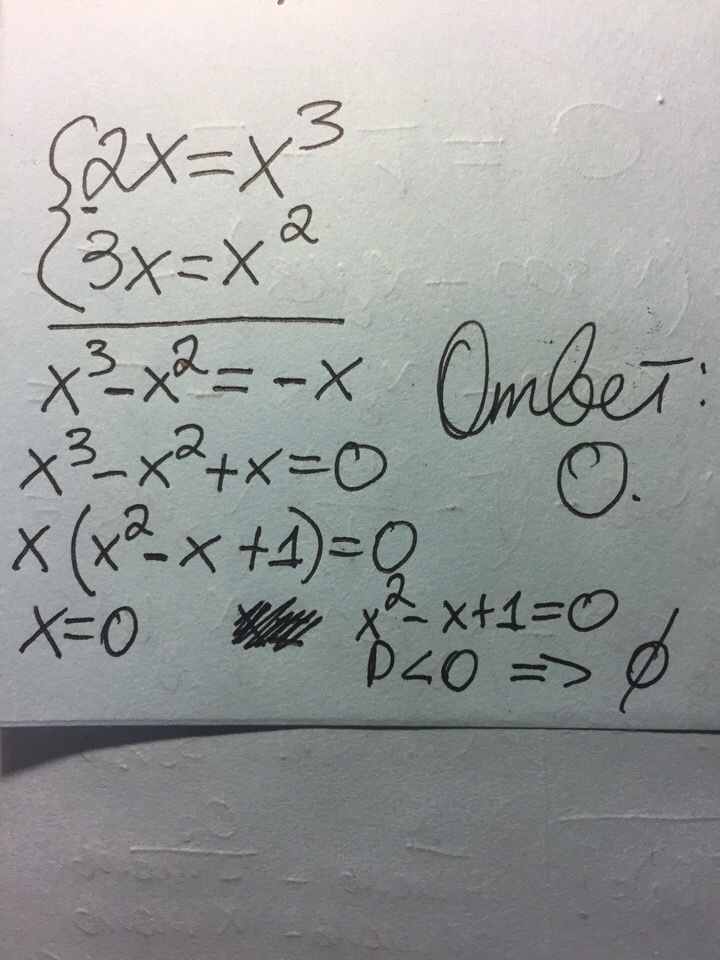 {2x=x³
-
{3x=x²
x³-x²=-x
x³-x²+x=0
x(x²-x+1)=0
x=0
x²-x+1=0
D<0 => ∅
Ответ:
0.